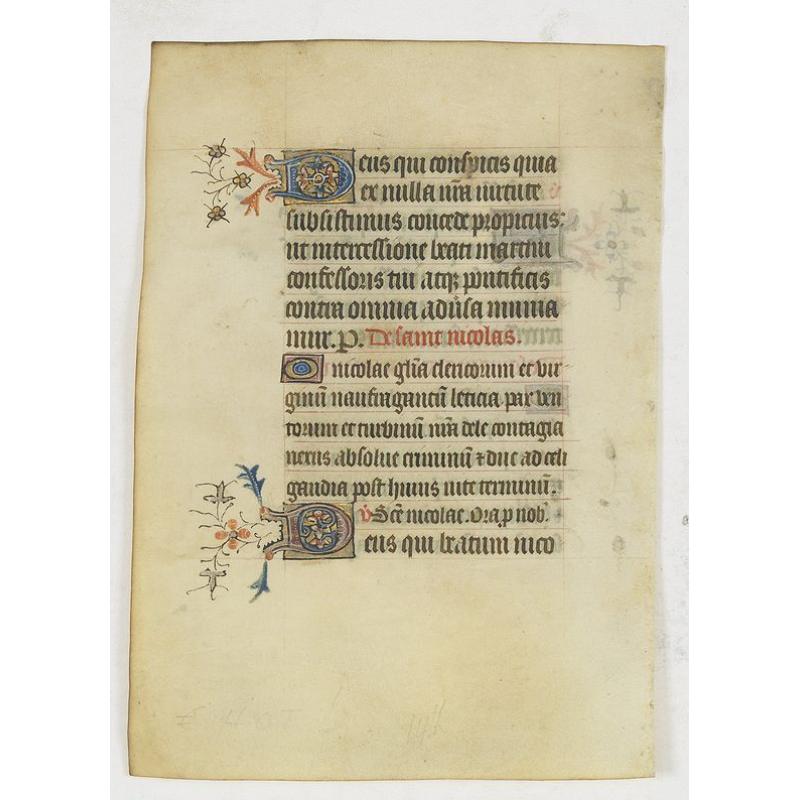 Deus qui conspicis quia
ex nulla nr̃a uirtute
subsistimus concede propicius;
ut intercessione beati martini
confessoris tui atqꝫ pontificis
contra omnia adũsa munia
mur. P. De saint nicolas.
O nicolae gl̃ia clericorum et vir
ginũ naufragantũ leticia pax ven
torum et turbinũ nr̃a dele contagia
nexus absolue criminũ ⁊ duc ad celi
gaudia post huius uite terminũ.
V̾ Sc̃e nicolae. Ora ꝓ nob̾.
Deus qui beatum nico